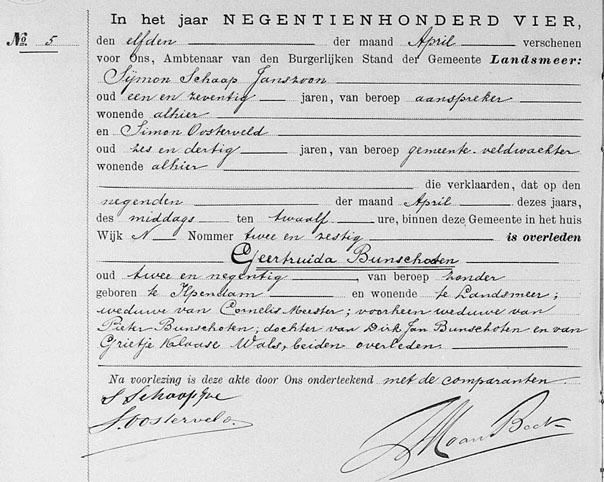 In het jaar NEGENTIENHONDERD VIER,
№ 5
den elfden der maand April verschenen
voor Ons, Ambtenaar van den Burgerlijken Stand der Gemeente Landsmeer:
Sijmon Schaap Janszoon
oud een en zeventig jaren, van beroep aanspreker
wonende alhier
en Simon Oosterveld
oud zes en dertig jaren, van beroep gemeente-veldwachter
wonende alhier
die verklaarden, dat op den
negenden der maand April dezes jaars,
des middags ten twaalf ure, binnen deze Gemeente in het huis
Wijk N Nommer twee en zestig is overleden
Geertruida Bunschoten
oud twee en negentig, van beroep zonder
geboren te Ilpendam en wonende te Landsmeer;
weduwe van Cornelis Meester; voorheen weduwe van
Pieter Bunschoten; dochter van Dirk Jan Bunschoten en van
Grietje Klaase Wals, beiden overleden.
Na voorlezing is deze akte door Ons onderteekend met de comparanten.
S Schaap
S. Oosterveld.